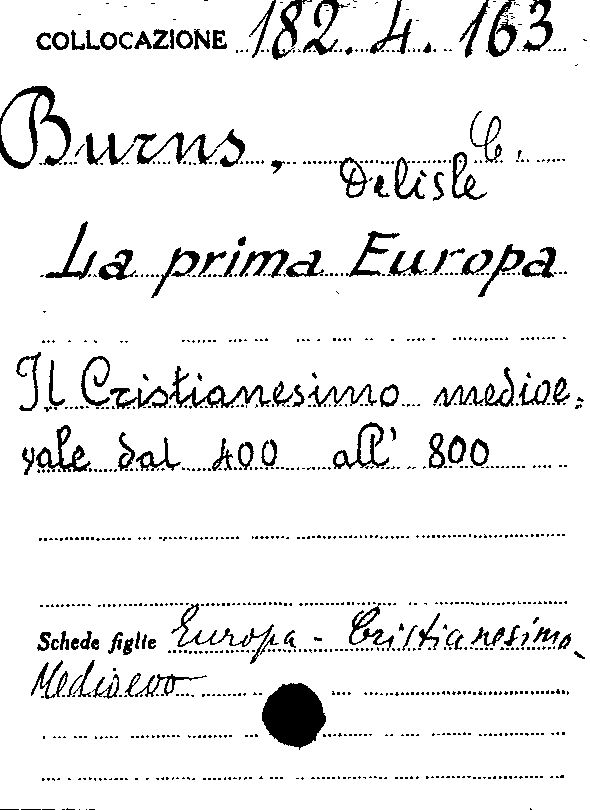 COLLOCAZIONE 182. 4. 163
Burns, C.
Delisle
La prima Europa
Il Cristianesimo medioe=
vale dal 400 all' 800
Schede figlie Europa - Cristianesimo
Medioevo